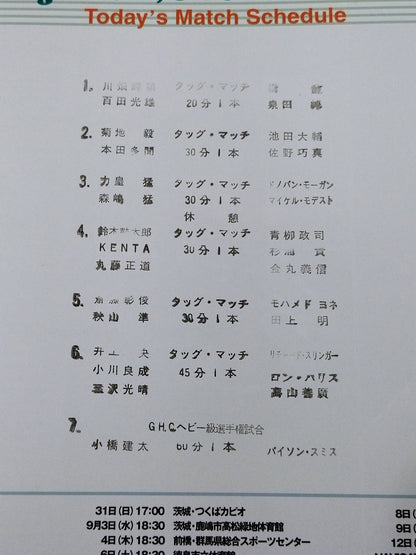 Today's Match Schedule
1. 川畑輝鎮 タッグ・マッチ
百田光雄 20分1本 泉田 純
2. 菊地 毅 タッグ・マッチ 池田大輔
本田多聞 30分1本 佐野巧真
3. 力皇 猛 タッグ・マッチ ドノバン・モーガン
森嶋 猛 30分1本 マイケル・モデスト
休 憩
4. 鈴木鼓太郎 タッグ・マッチ 青柳政司
KENTA 30分1本 杉浦 貴
丸藤正道 金丸義信
5. 齋藤彰俊 タッグ・マッチ モハメド ヨネ
秋山 準 30分1本 田上 明
6. 井上 央 タッグ・マッチ リチャード・スリンガー
小川良成 45分1本 ロン・ハリス
三沢光晴 高山善廣
7. GHCヘビー級選手権試合
小橋建太 60分1本 バイソン・スミス
31日(日)17:00 茨城・つくばカピオ 8日(
9月3日(水)18:30 茨城・鹿嶋市高松緑地体育館 9日(
4日(木)18:30 前橋・群馬県総合スポーツセンター 12日(
6日(土)18:30 徳島市立体育館